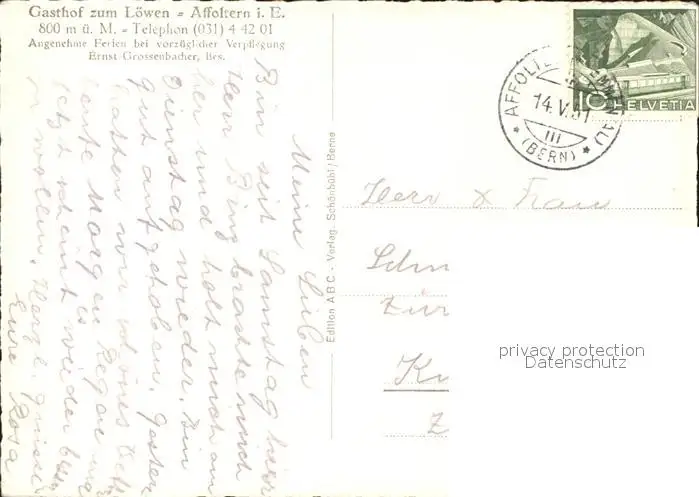 Gasthof zum Löwen - Affoltern i. E.
800 m ü. M. - Telephon (031) 4 42 01
Angenehme Ferien bei vorzüglicher Verpflegung
Ernst Grossenbacher, Bes.
Meine Lieben
Bin seit Samstag hier
Herr Bing brachte mich
her und holt mich am
Dienstag wieder. Bin
gut aufgehoben. Gestern
hatten wir schönes
heute Morgen Regen und
jetzt scheint es wieder
zu wollen. Herzl. Grüsse
Eure Rosa
Edition ABC - Verlag - Schönbühl / Berne
10 HELVETIA
AFFOLTERN EMMENTAL
14.V.51
III
(BERN)
Herr & Frau
Schm
Zür
Z
privacy protection
Datenschutz